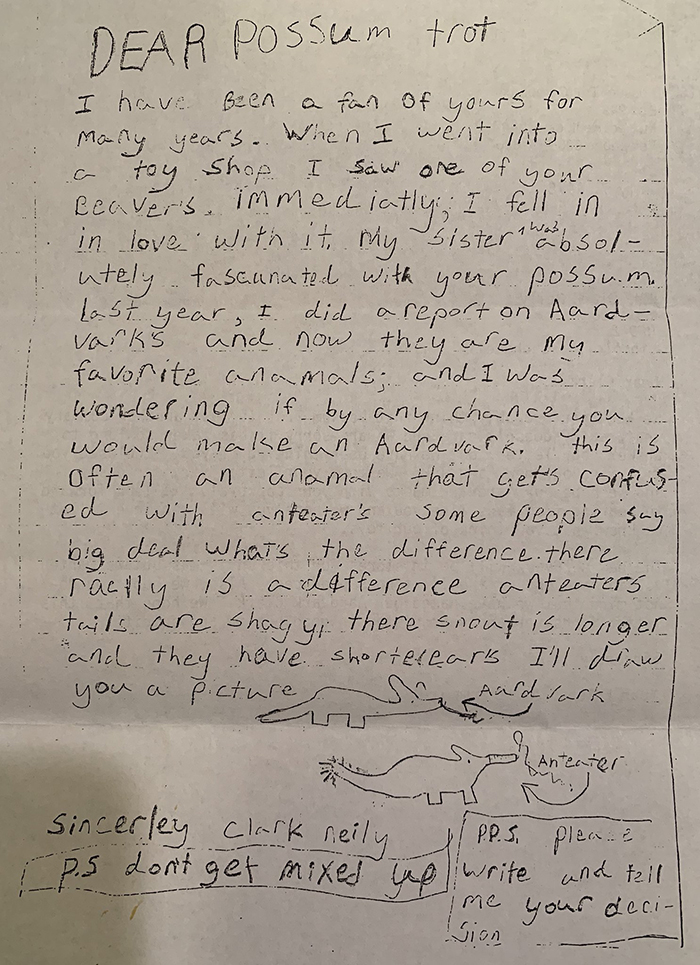 DEAR POSSum trot
I have Been a fan of yours for
many years. When I went into
a toy shop I saw one of your
Beavers. immediatly; I fell in
in love with it. My sister was absol-
utely fascunated with your possum.
Last year, I did a report on Aard-
varks and now they are my
favorite anamals; and I was
wondering if by any chance you
would make an Aardvark. this is
often an anamal that gets confus-
ed with anteater's some people say
big deal whats the difference. there
raelly is a difference anteaters
tails are shagy, there snout is longer
and they have shorter ears I'll draw
you a picture
Aardvark
Anteater
Sincerley Clark neily
P.S don't get mixed up
P.P.S. please
write and tell
me your deci-
sion